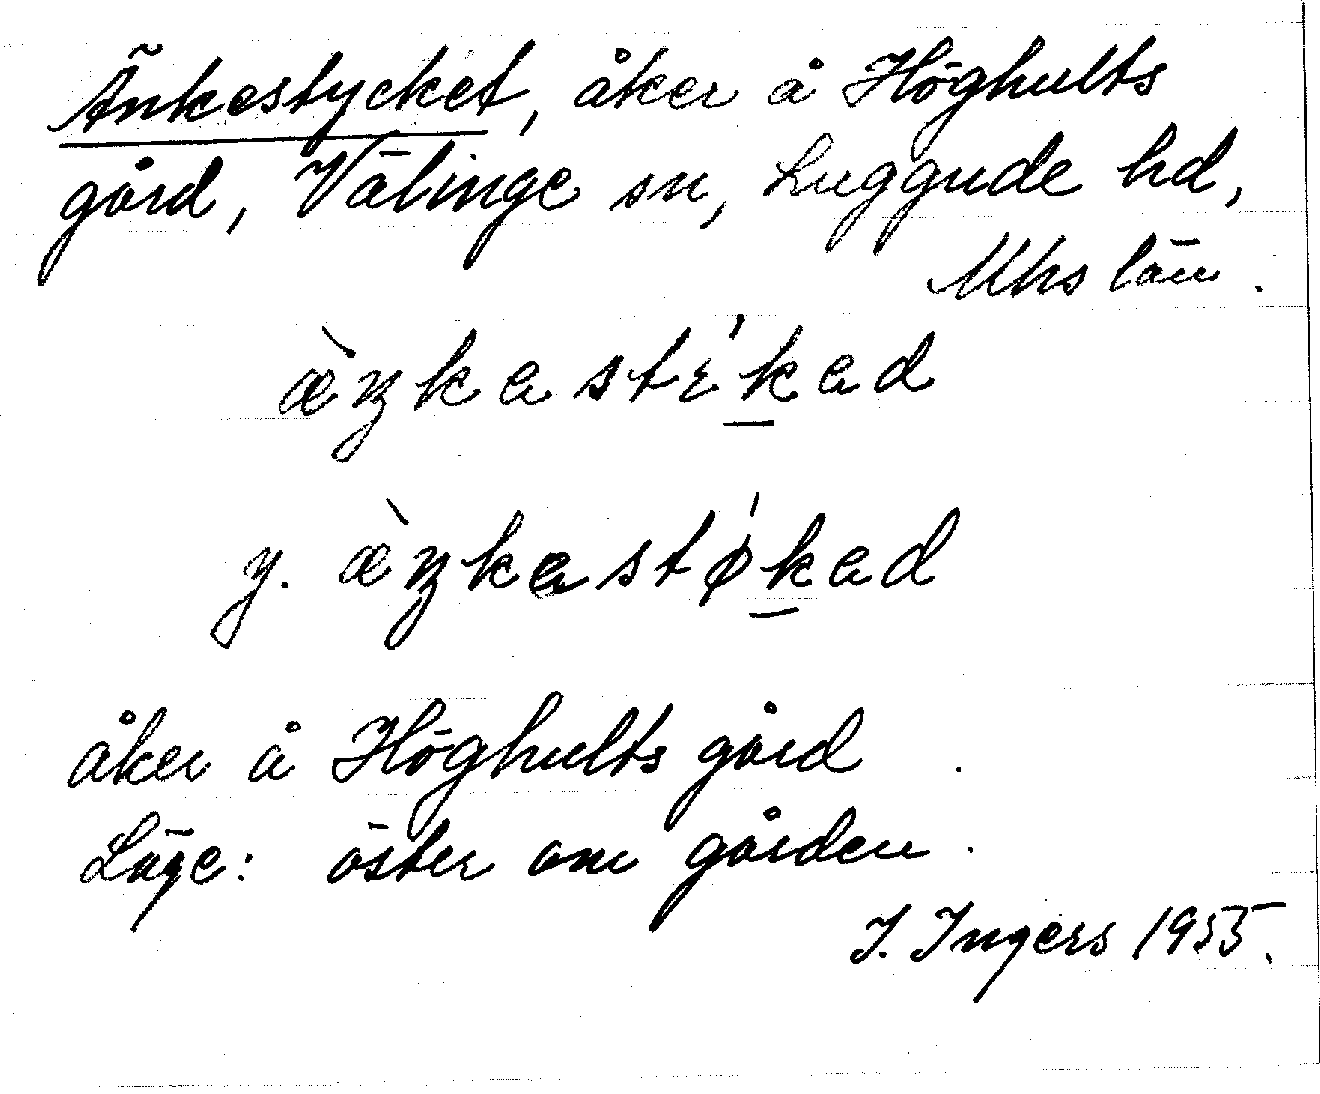 Änkestycket, åker å Höghults
gård, Välinge sn, Luggude hd,
Mhs län.
æ̀ŋkastɛ́kad
y. æ̀ŋkastǿkad
åker å Höghults gård.
Läge: öster om gården.
I. Ingers 1955.